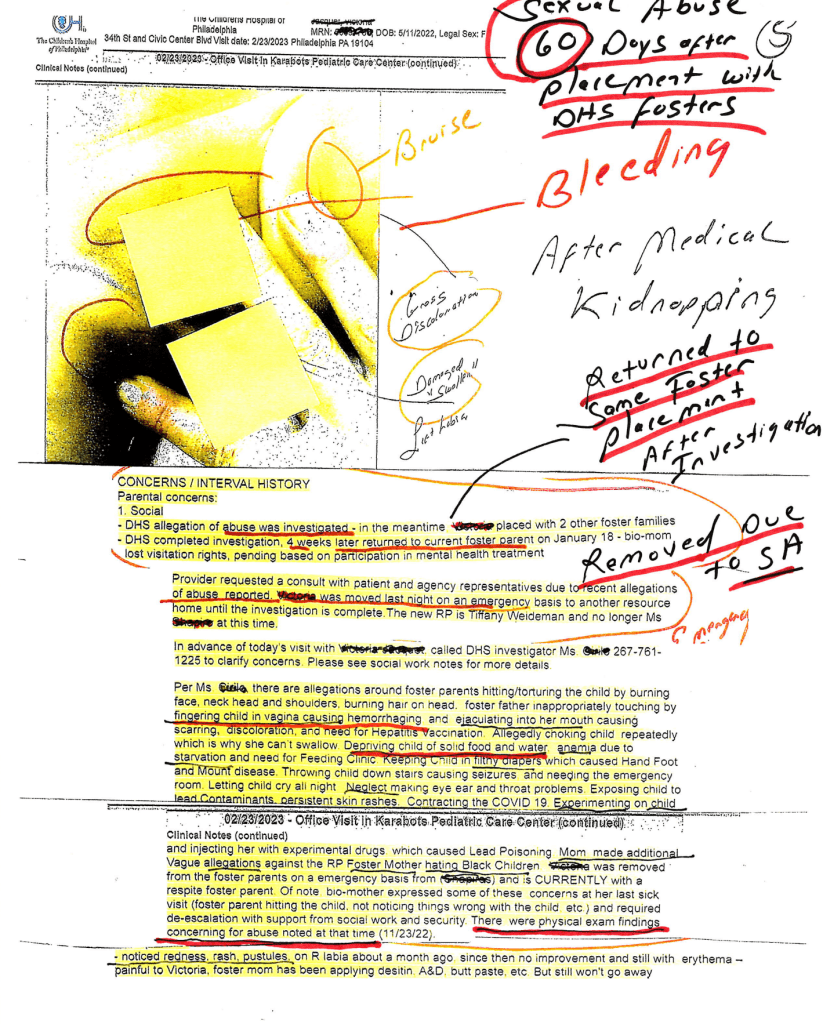 The Childrens Hospital of
Philadelphia
MRN: DOB: 5/11/2022, Legal Sex: F
The Children's Hospital
of Philadelphia
34th St and Civic Center Blvd Visit date: 2/23/2023 Philadelphia PA 19104
02/23/2023 - Office Visit in Karabots Pediatric Care Center (continued)
Clinical Notes (continued)
Sexual Abuse
60 Days after
placement with
DHS fosters
5
Bruise
Bleeding
After Medical
Kidnapping
Gross
Discoloration
Damaged
Swollen
Labia
Returned to
Same Foster
placement
After
Investigation
CONCERNS / INTERVAL HISTORY
Parental concerns:
1. Social
- DHS allegation of abuse was investigated - in the meantime placed with 2 other foster families
- DHS completed investigation, 4 weeks later returned to current foster parent on January 18 - bio-mom
lost visitation rights, pending based on participation in mental health treatment
Removed Due
to SA
Provider requested a consult with patient and agency representatives due to recent allegations
of abuse reported. was moved last night on an emergency basis to another resource
home until the investigation is complete. The new RP is Tiffany Weideman and no longer Ms
at this time.
Emergency
In advance of today's visit with called DHS investigator Ms. 267-761-
1225 to clarify concerns. Please see social work notes for more details
Per Ms. there are allegations around foster parents hitting/torturing the child by burning
face, neck head and shoulders, burning hair on head. foster father inappropriately touching by
fingering child in vagina causing hemorrhaging and ejaculating into her mouth causing
scarring, discoloration, and need for Hepatitis Vaccination. Allegedly choking child repeatedly
which is why she can't swallow. Depriving child of solid food and water, anemia due to
starvation and need for Feeding Clinic Keeping Child in filthy diapers which caused Hand Foot
and Mount disease. Throwing child down stairs causing seizures and needing the emergency
room. Letting child cry all night Neglect making eye ear and throat problems. Exposing child to
lead Contaminants, persistent skin rashes. Contracting the COVID 19. Experimenting on child
02/23/2023 - Office Visit in Karabots Pediatric Care Center (continued)
Clinical Notes (continued)
and injecting her with experimental drugs. which caused Lead Poisoning. Mom made additional
Vague allegations against the RP Foster Mother hating Black Children was removed
from the foster parents on a emergency basis from and is CURRENTLY with a
respite foster parent. Of note, bio-mother expressed some of these concerns at her last sick
visit (foster parent hitting the child, not noticing things wrong with the child, etc.) and required
de-escalation with support from social work and security. There were physical exam findings
concerning for abuse noted at that time (11/23/22).
- noticed redness, rash, pustules, on R labia about a month ago. since then no improvement and still with erythema –
painful to Victoria, foster mom has been applying desitin, A&D, butt paste, etc. But still won't go away